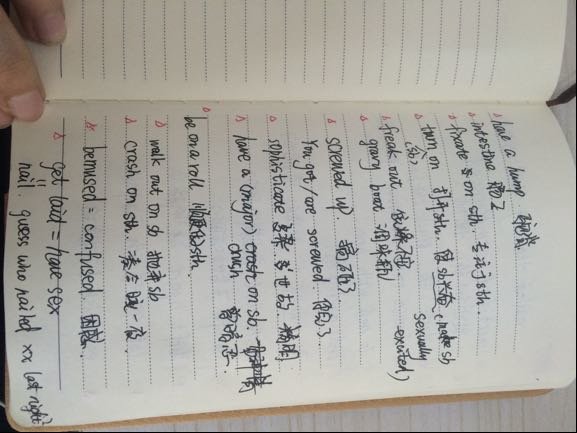 have a hump 驼背
intestine 肠子
fixate on sth. 专注于sth.
turn on 打开sth. 给sb (make sb
(to) sexually
excited)
freak out 
gravy boat 调味
screwed up 搞砸了
You got/are screwed 你完了
sophisticate 复杂 老世故
have a (major) crash on sb.
crush 暗恋
be on a roll sth.
walk out on sb 抛弃sb
crash on sth. 凑合睡一夜
bemused = confused 困惑
get laid = have sex
nail. guess who nailed xx last night?